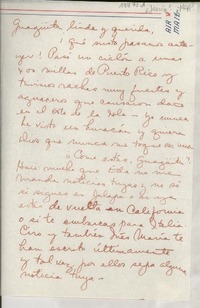 Guaguita linda y querida,
¡Qué susto pasamos ante-
ayer! Pasó un ciclón a unas
400 millas de Puerto Rico y
tuvimos rachas muy fuertes y
aguaceros que causaron daños
en el Este de la Isla. Yo nunca
he visto un huracán y quiera
Dios que nunca me toque
¿Cómo estás, Guaguita?
Hace mucho que Eda no me
manda noticias tuyas y no sé
si sigues en Jalapa o si ya
estás de vuelta en California
o si te embarcas para Italia.
Ciro y también Inés María te
han escrito últimamente
y tal vez por ellos sepa alguna
noticia tuya.
AIR MAIL